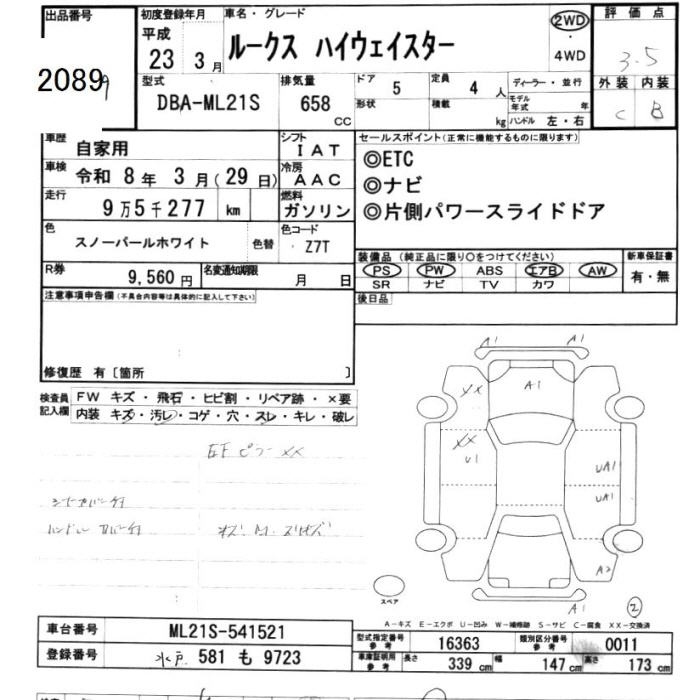 出品番号
2089
初度登録年月
平成
23 3月
車名・グレード
ルークス ハイウェイスター
2WD
・
4WD
評価点
3.5
外装 内装
C B
型式
DBA-ML21S
排気量
658
CC
ドア 5
形状
定員 4 人
積載 kg
ディーラー・並行
モデル年式 年
ハンドル 左・右
車歴 自家用
シフト IAT
車検 令和 8年 3月(29日)
冷房 AAC
走行 9万5千277 km
燃料 ガソリン
色 スノーパールホワイト 色替
色コード Z7T
R券 9,560円
名変通知期限 月 日
セールスポイント(正常に機能するものに限ります)
◎ETC
◎ナビ
◎片側パワースライドドア
装備品(純正品に限り○をつけてください)
PS PW ABS エアB AW
SR ナビ TV カワ
新車保証書
有・無
後日品
注意事項申告欄(不具合内容等は具体的に記入して下さい)
修復歴 有〔箇所 〕
検査員記入欄
FW キズ・飛石・ヒビ割・リペア跡・×要
内装 キズ・汚レ・コゲ・穴・スレ・キレ・破レ
A1 A1
XX A1
XX
U1
UA1
UA1
A2
A1
スペア
2
A-キズ E-エクボ U-凹み W-補修跡 S-サビ C-腐食 XX-交換済
車台番号 ML21S-541521
登録番号 水戸 581 も 9723
型式指定番号 参考 16363
類別区分番号 参考 0011
車庫証明用 参考 長さ 339 cm 幅 147 cm 高さ 173 cm